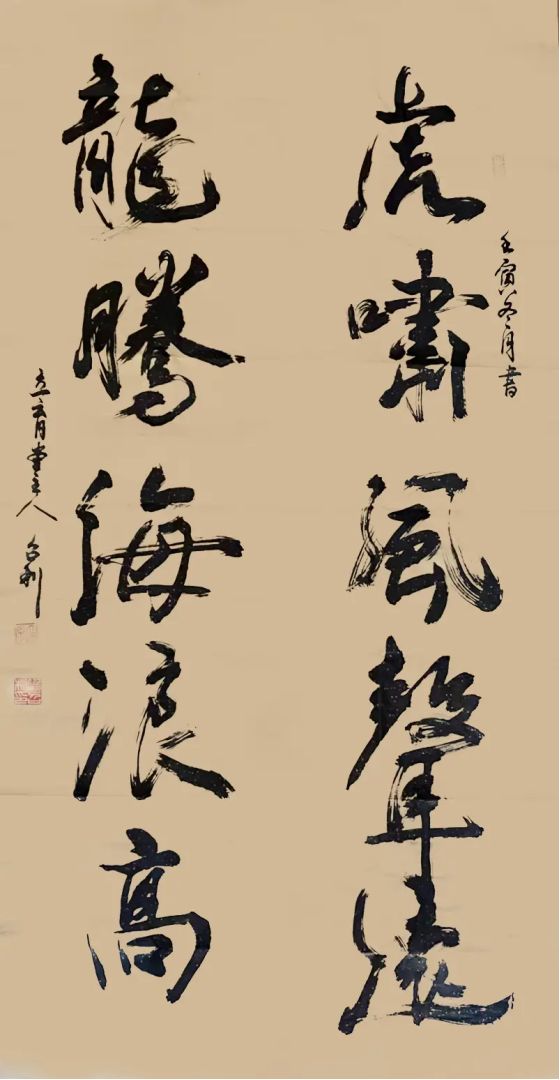 壬寅冬月書
虎嘯風聲遠
龍騰海浪高
主人